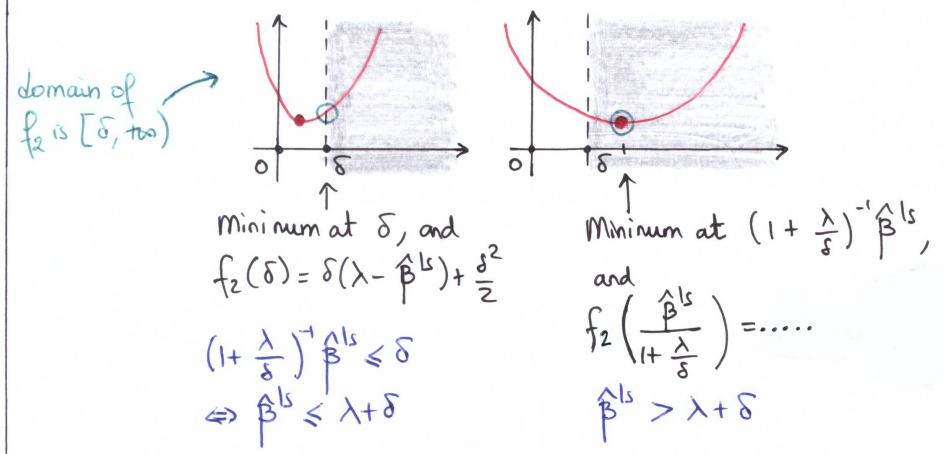 domain of
f₂ is [δ, +∞)
0 δ
0 δ
Minimum at δ, and
f₂(δ) = δ(λ - β̂ˡˢ) + δ²/2
(1 + λ/δ)⁻¹ β̂ˡˢ ≤ δ
⇔ β̂ˡˢ ≤ λ + δ
Minimum at (1 + λ/δ)⁻¹ β̂ˡˢ,
and
f₂(β̂ˡˢ / (1 + λ/δ)) = .....
β̂ˡˢ > λ + δ